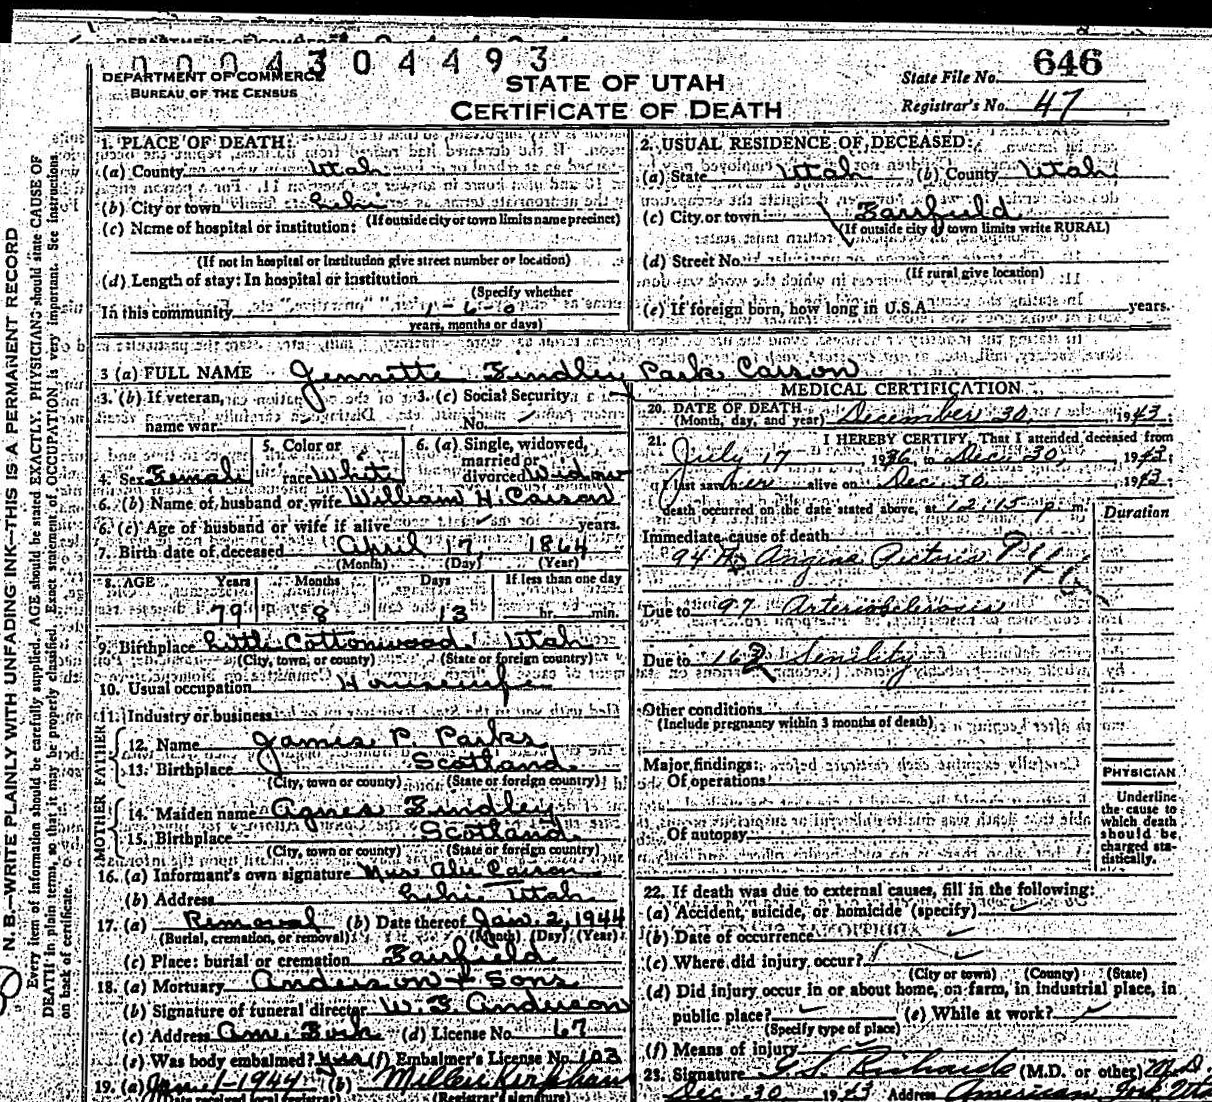 0 0 0 4 3 0 4 4 9 3
DEPARTMENT OF COMMERCE
BUREAU OF THE CENSUS
STATE OF UTAH
CERTIFICATE OF DEATH
State File No. 646
Registrar's No. 47
N. B.—WRITE PLAINLY WITH UNFADING INK—THIS IS A PERMANENT RECORD
Every item of information should be carefully supplied. AGE should be stated EXACTLY. PHYSICIANS should state CAUSE OF
DEATH in plain terms, so that it may be properly classified. Exact statement of OCCUPATION is very important. See instructions
on back of certificate.
1. PLACE OF DEATH:
(a) County Utah
(b) City or town Lehi
(If outside city or town limits name precinct)
(c) Name of hospital or institution:
(If not in hospital or institution give street number or location)
(d) Length of stay: In hospital or institution
(Specify whether
In this community 1-6-0
years, months or days)
2. USUAL RESIDENCE OF DECEASED:
(a) State Utah (b) County Utah
(c) City or town Fairfield
(If outside city or town limits write RURAL)
(d) Street No.
(If rural give location)
(e) If foreign born, how long in U.S.A. years.
3 (a) FULL NAME Jennette Findley Park Carson
3. (b) If veteran, 3. (c) Social Security
name war No.
4. Sex Female 5. Color or race White 6. (a) Single, widowed, married or divorced Widow
6. (b) Name of husband or wife William H. Carson
6. (c) Age of husband or wife if alive years.
7. Birth date of deceased April 17, 1864
(Month) (Day) (Year)
8. AGE Years Months Days If less than one day
79 8 13 hr. min.
9. Birthplace Little Cottonwood Utah
(City, town, or county) (State or foreign country)
10. Usual occupation Housewife
11. Industry or business
FATHER
12. Name James P. Parks
13. Birthplace Scotland
(City, town or county) (State or foreign country)
MOTHER
14. Maiden name Agnes Findley
15. Birthplace Scotland
(City, town or county) (State or foreign country)
16. (a) Informant's own signature Carson
(b) Address Lehi Utah
17. (a) Removal (b) Date thereof Jan. 2, 1944
(Burial, cremation, or removal) (Month) (Day) (Year)
(c) Place: burial or cremation Fairfield
18. (a) Mortuary Anderson & Sons
(b) Signature of funeral director W. F. Anderson
(c) Address Am. Fork (d) License No. 67
(e) Was body embalmed? Yes (f) Embalmer's License No. 103
19. (a) Jan 1-1944 (b)
(Date received local registrar) (Registrar's signature)
MEDICAL CERTIFICATION
20. DATE OF DEATH
(Month, day, and year) December 30, 1943.
21. I HEREBY CERTIFY, That I attended deceased from
July 17 1936, to Dec. 30, 1943;
I last saw her alive on Dec. 30 1943;
death occurred on the date stated above, at 12:15 p m.
Duration
Immediate cause of death
94 Angina Pectoris
Due to 97 Arteriosclerosis
Due to 162 Senility
Other conditions
(Include pregnancy within 3 months of death)
Major findings:
Of operations
Of autopsy
PHYSICIAN
Underline
the cause to
which death
should be
charged sta-
tistically.
22. If death was due to external causes, fill in the following:
(a) Accident, suicide, or homicide (specify)
(b) Date of occurrence
(c) Where did injury occur?
(City or town) (County) (State)
(d) Did injury occur in or about home, on farm, in industrial place, in
public place? (e) While at work?
(Specify type of place)
(f) Means of injury
23. Signature Richards (M.D. or other) M.D.
Dec 30 1943 Address American Fork, Utah